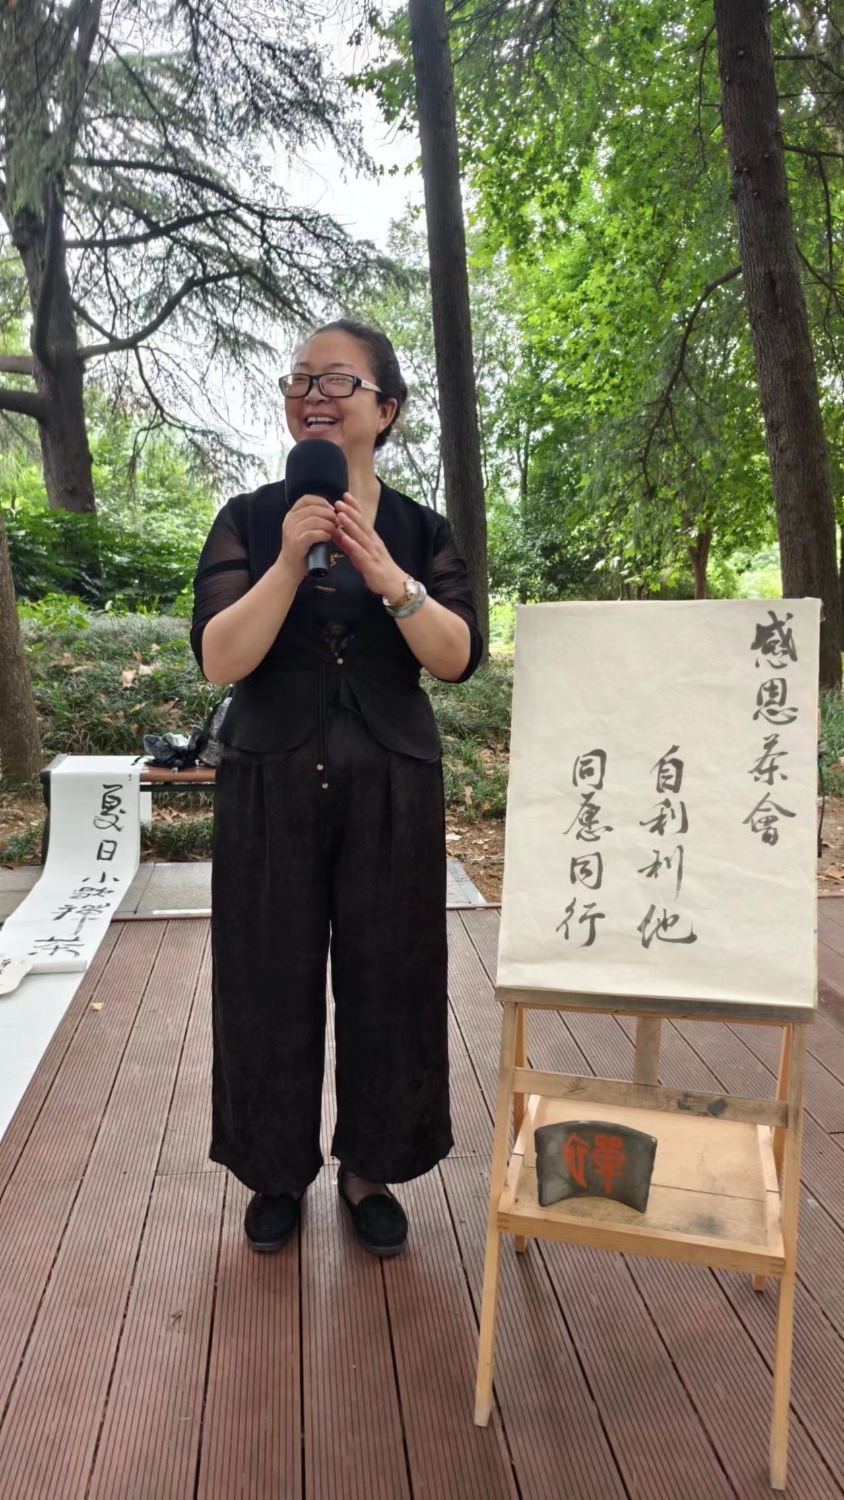 感恩茶會
自利利他
同愿同行
夏日小禪茶
禪